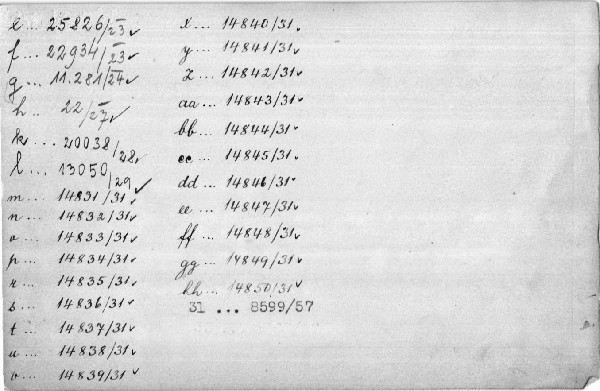 e ... 25826/23 ✓
f ... 22934/23 ✓
g ... 11.281/24 ✓
h .. 22/27 ✓
k ... 20038/28 ✓
l ... 13050/29 ✓
m ... 14831/31 ✓
n ... 14832/31 ✓
o ... 14833/31 ✓
p ... 14834/31 ✓
r ... 14835/31 ✓
s ... 14836/31 ✓
t ... 14837/31 ✓
u ... 14838/31 ✓
v ... 14839/31 ✓
x ... 14840/31 ✓
y ... 14841/31 ✓
z ... 14842/31 ✓
aa ... 14843/31 ✓
bb ... 14844/31 ✓
cc ... 14845/31 ✓
dd ... 14846/31 ✓
ee ... 14847/31 ✓
ff ... 14848/31 ✓
gg ... 14849/31 ✓
hh ... 14850/31 ✓
31 ... 8599/57